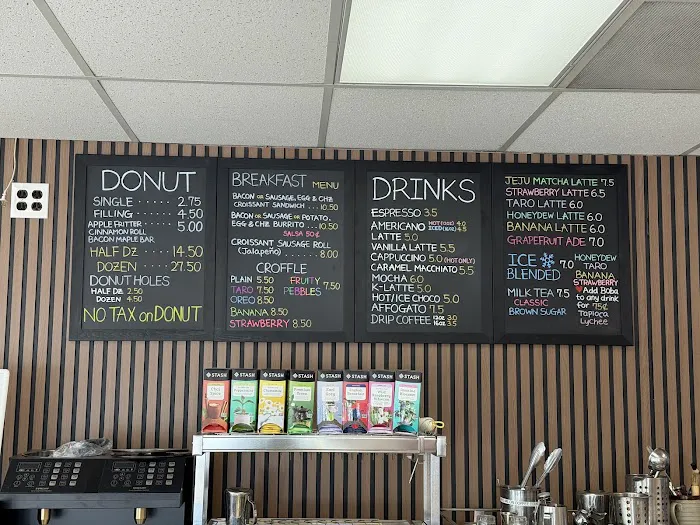 DONUT
SINGLE ····· 2.75
FILLING ····· 4.50
APPLE FRITTER ····· 5.00
CINNAMON ROLL
BACON MAPLE BAR
HALF DZ ···· 14.50
DOZEN ···· 27.50
DONUT HOLES
HALF DZ. 2.50
DOZEN 4.50
NO TAX on DONUT
BREAKFAST MENU
BACON OR SAUSAGE, EGG & CHZ
CROISSANT SANDWICH ... 10.50
BACON OR SAUSAGE OR POTATO.
EGG & CHZ BURRITO .... 10.50
SALSA 50¢
CROISSANT SAUSAGE ROLL
(Jalapeño) ....... 8.00
CROFFLE
PLAIN 5.50
TARO 7.50
OREO 8.50
BANANA 8.50
STRAWBERRY 8.50
FRUITY
PEBBLES 7.50
DRINKS
ESPRESSO 3.5
AMERICANO HOT 4.0
ICED 4.5
LATTE 5.0
VANILLA LATTE 5.5
CAPPUCCINO 5.0 (HOT ONLY)
CARAMEL MACCHIATO 5.5
MOCHA 6.0
K-LATTE 5.0
HOT/ICE CHOCO 5.0
AFFOGATO 7.5
DRIP COFFEE 12oz 3.0
16oz 3.5
JEJU MATCHA LATTE 7.5
STRAWBERRY LATTE 6.5
TARO LATTE 6.0
HONEYDEW LATTE 6.0
BANANA LATTE 6.0
GRAPEFRUIT ADE 7.0
ICE
BLENDED 7.0
HONEYDEW
TARO
BANANA
STRAWBERRY
MILK TEA 7.5
CLASSIC
BROWN SUGAR
Add Boba
to any drink
for 75¢
Tapioca
Lychee
STASH
STASH
STASH
STASH
STASH
STASH
STASH
STASH